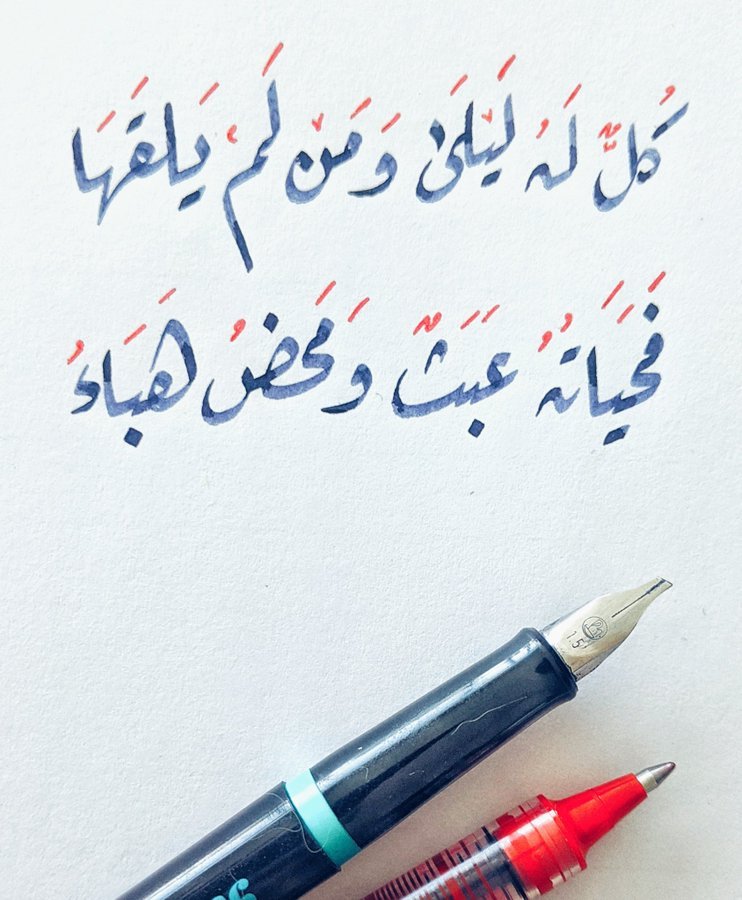 كُلٌّ لَهُ لَيْلَىٰ وَمَنْ لَمْ يَلقَهَا
فَحَيَاتُهُ عَبَثٌ وَمَحضُ هَبَاءُ
1.5